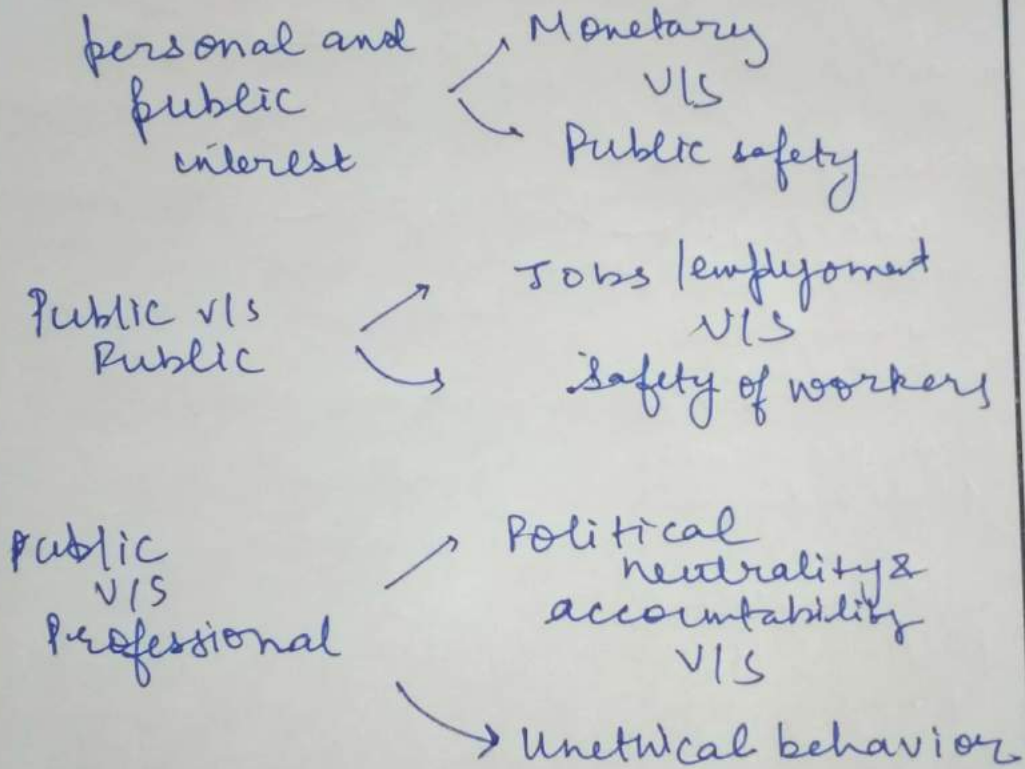 personal and
public
interest
Monetary
v/s
Public safety
Public v/s
Public
Jobs/emplyoment
v/s
Safety of workers
Public
v/s
Professional
Political
neutrality &
accountability
v/s
Unethical behavior